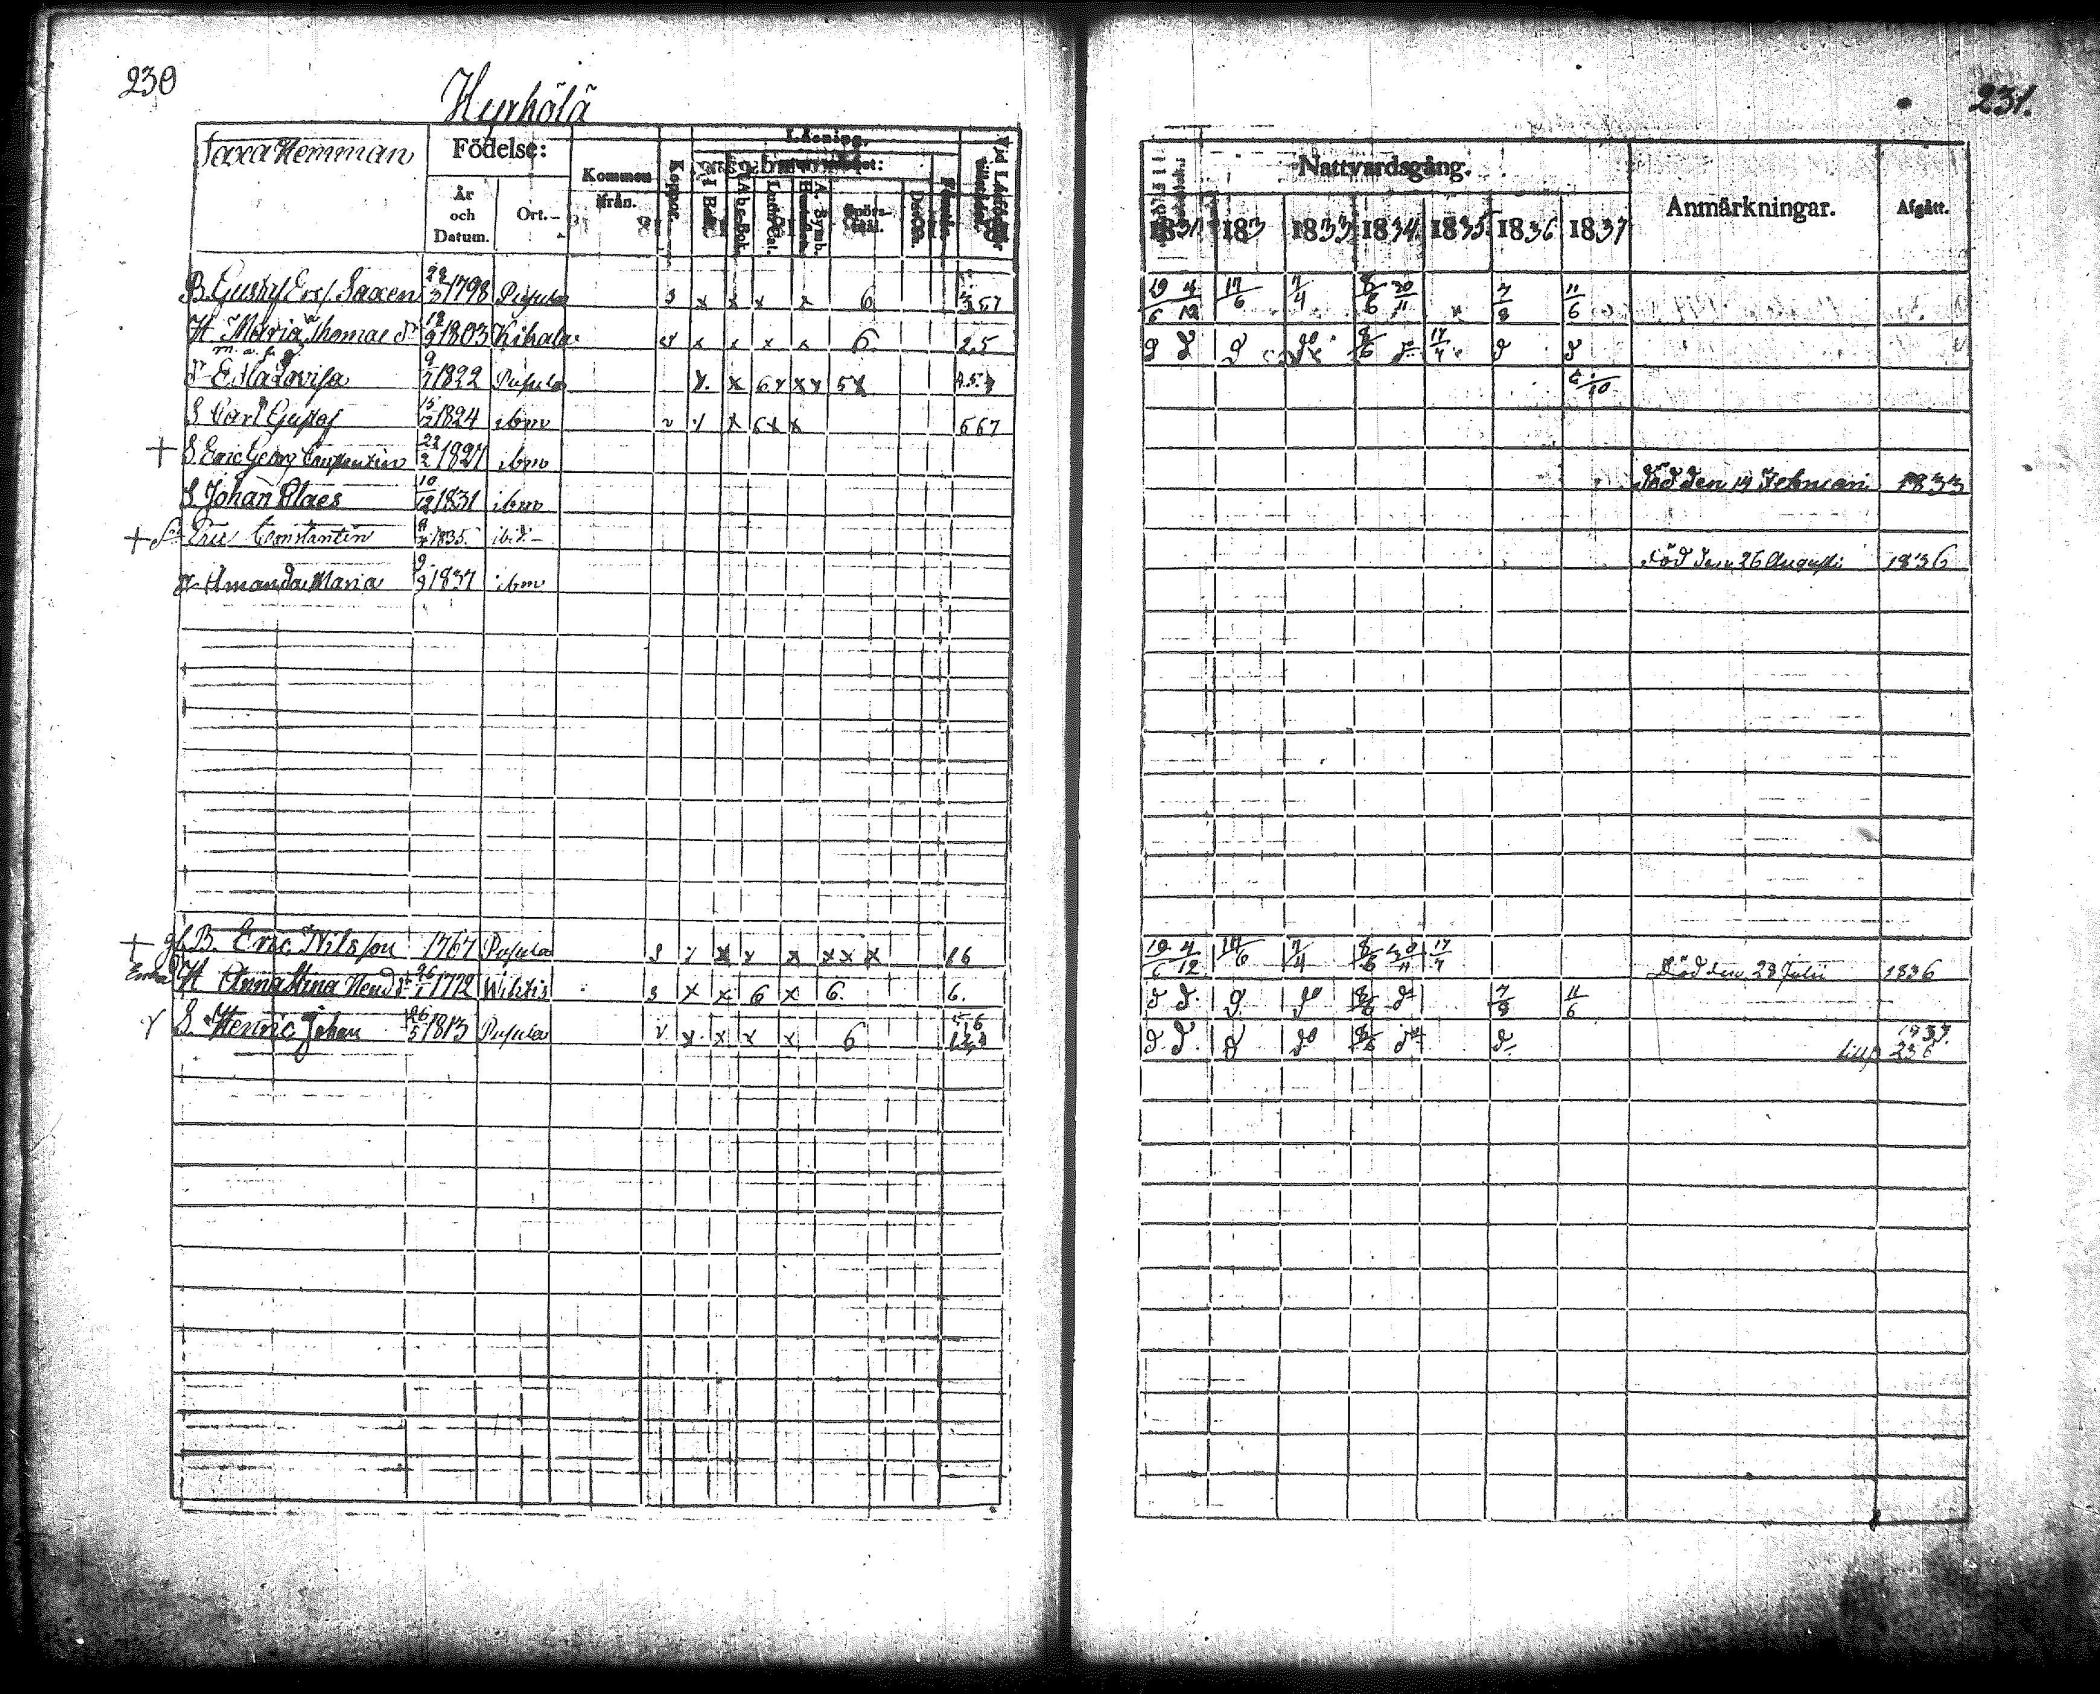 230
Hyrkölä
Saxa Hemman
Födelse:
År och Datum.
Ort.
Kommen ifrån.
Koppor.
Läsning.
I Bok.
A b c Bok.
Luth. Cat.
A. Symb.
Spörsmål.
Dav. Ps.
B. Gustaf Ers. Saxen 28/3 1798 Pusula s x x x x 6 357
H. Maria Thomae dr 18/9 1803 Kikala v x x x x 6 2,5
D Eva Lovisa 9/7 1822 Pusula x x 6x xx 5x 4.5.7
S Carl Gustaf 15/12 1824 ibm v x x 6x x 567
+ S. Eric Georg 22/2 1827 ibm
S Johan Claes 10/12 1831 ibm
+ Sn Eric Constantin 1835. ibd
D. Amanda Maria 9/9 1837 ibm
+ gl B. Eric Nilsson 1767 Pusula s x x x x xxx 66
Enka H Anna Stina Hend dr 26/1 1772 Wichtis s x x 6 x 6. 6.
S. Henric Johan 26/5 1813 Pusula v x x x x 6
231.
Nattvardsgång.
1831 183 1833 1834 1835 1836 1837
Anmärkningar.
Afgått.
19/6 4/12 17/6 7/4 8/6 30/11 7/8 11/6
D D D do 8/6 do 17/4 D D
/10
Död den 14 Februari 1833
Död den 26 Augusti 1836
19/6 4/12 17/6 7/4 8/6 30/11 17/4 Död den 28 Julii 1836
D D. D. do 8/6 do 7/8 11/6
D. D. D do 8/6 do D. 1837. 236